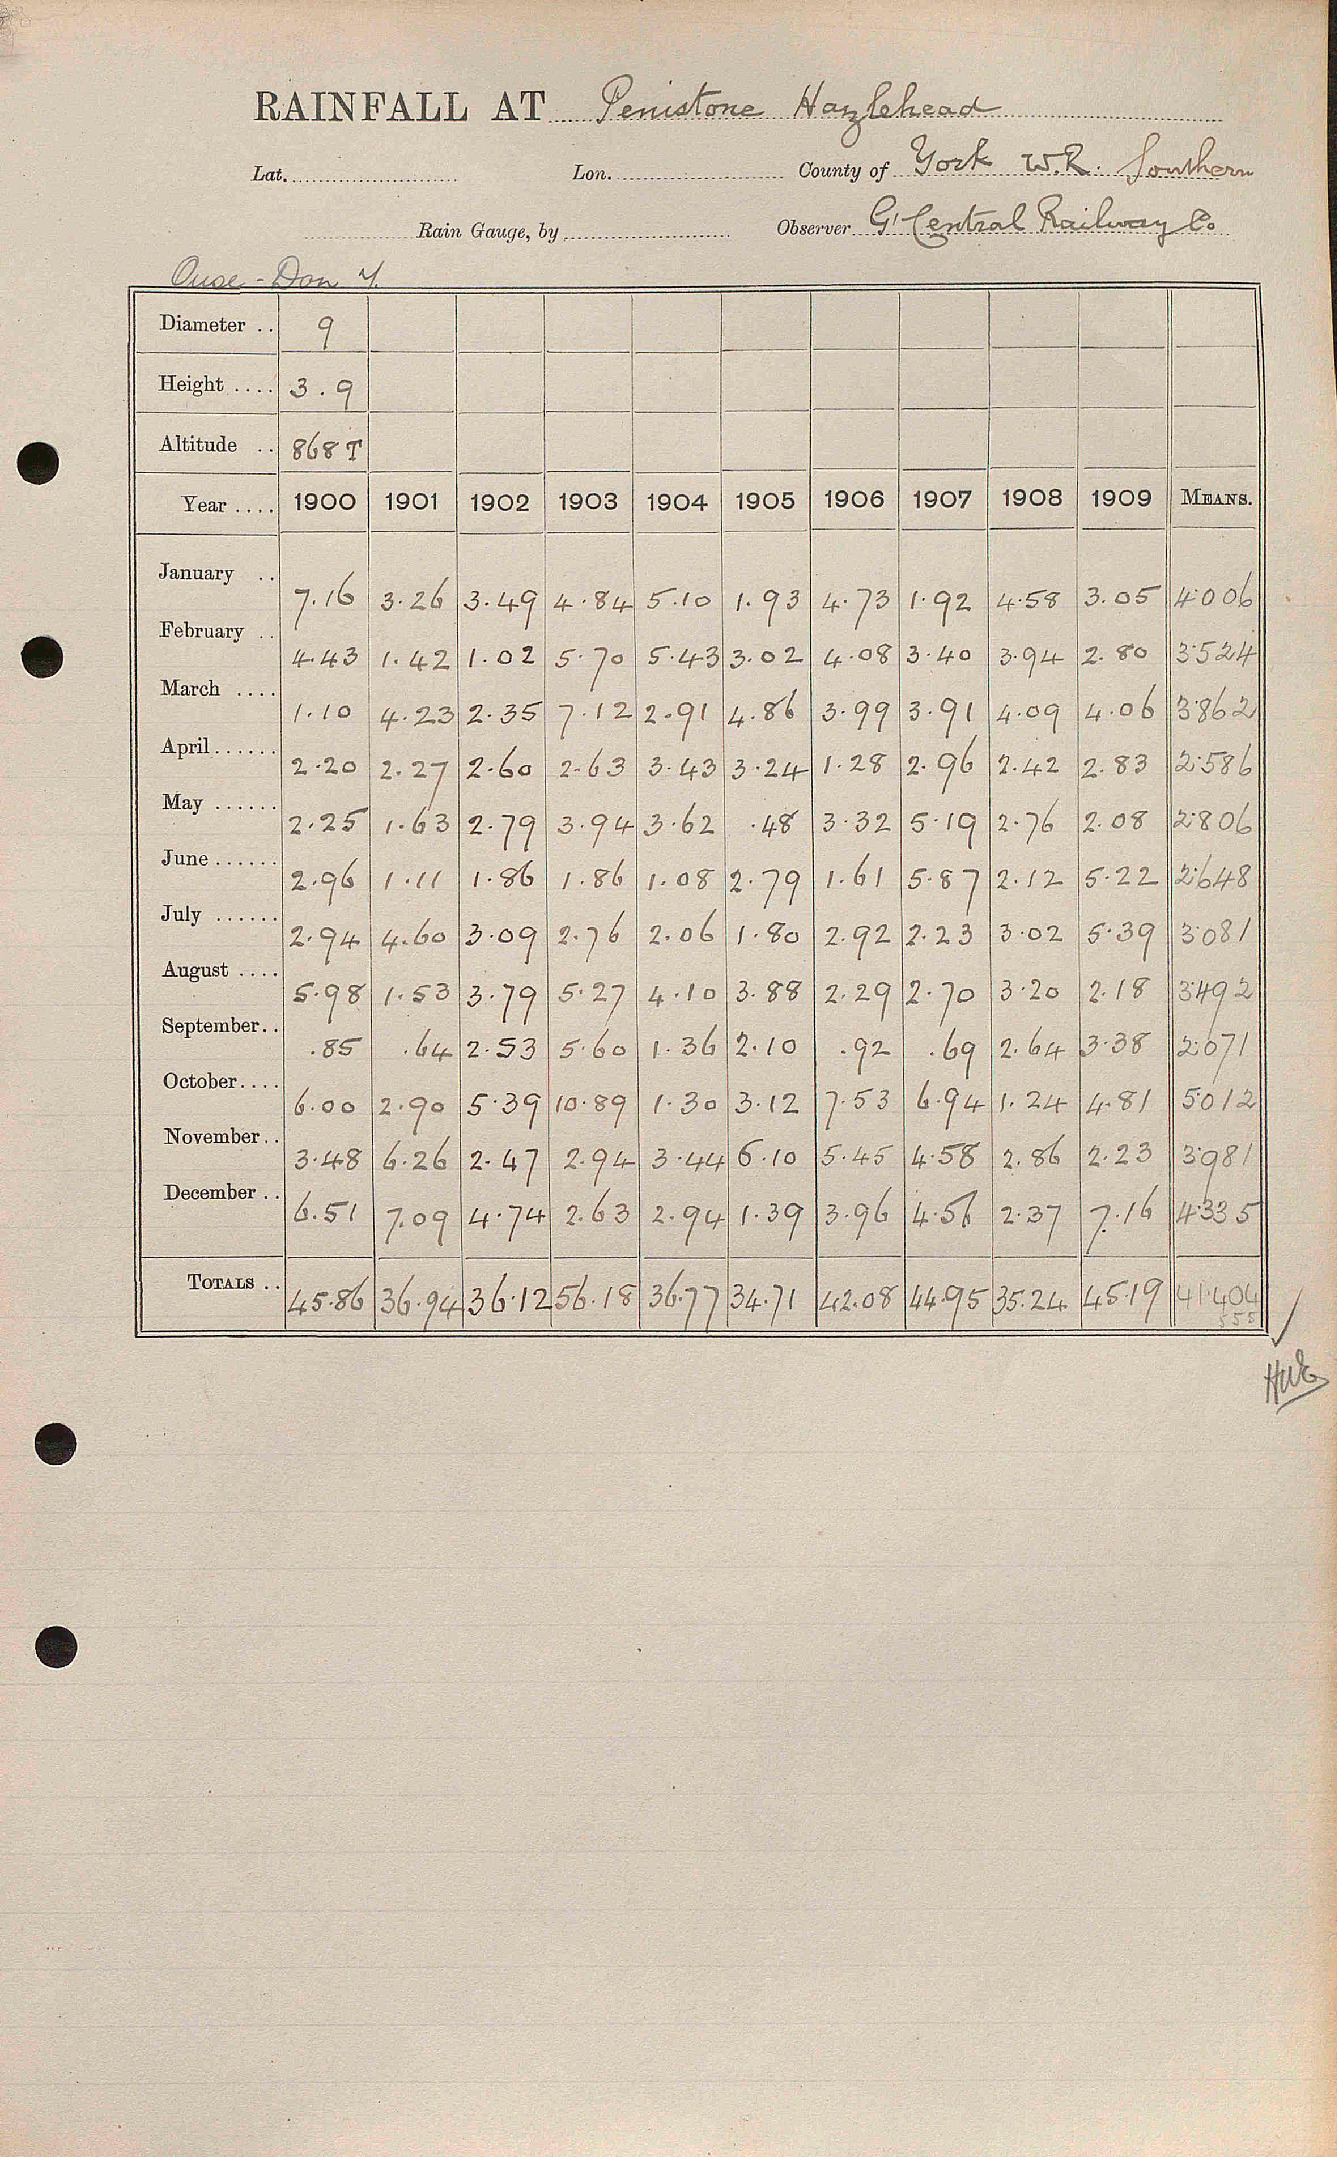 RAINFALL AT Penistone Hazlehead
Lat. Lon. County of York W.R. Southern
Rain Gauge, by Observer Gt Central Railway Co
Ouse - Don Y.
Diameter .. 9
Height .... 3.9
Altitude .. 868 T
Year .... 1900 1901 1902 1903 1904 1905 1906 1907 1908 1909 MEANS.
January .. 7.16 3.26 3.49 4.84 5.10 1.93 4.73 1.92 4.58 3.05 4.006
February .. 4.43 1.42 1.02 5.70 5.43 3.02 4.08 3.40 3.94 2.80 3.524
March .... 1.10 4.23 2.35 7.12 2.91 4.86 3.99 3.91 4.09 4.06 3.862
April...... 2.20 2.27 2.60 2.63 3.43 3.24 1.28 2.96 2.42 2.83 2.586
May ...... 2.25 1.63 2.79 3.94 3.62 .48 3.32 5.19 2.76 2.08 2.806
June...... 2.96 1.11 1.86 1.86 1.08 2.79 1.61 5.87 2.12 5.22 2.648
July ...... 2.94 4.60 3.09 2.76 2.06 1.80 2.92 2.23 3.02 5.39 3.081
August .... 5.98 1.53 3.79 5.27 4.10 3.88 2.29 2.70 3.20 2.18 3.492
September.. .85 .64 2.53 5.60 1.36 2.10 .92 .69 2.64 3.38 2.071
October.... 6.00 2.90 5.39 10.89 1.30 3.12 7.53 6.94 1.24 4.81 5.012
November.. 3.48 6.26 2.47 2.94 3.44 6.10 5.45 4.58 2.86 2.23 3.981
December .. 6.51 7.09 4.74 2.63 2.94 1.39 3.96 4.56 2.37 7.16 4.335
TOTALS .. 45.86 36.94 36.12 56.18 36.77 34.71 42.08 44.95 35.24 45.19 41.404
555